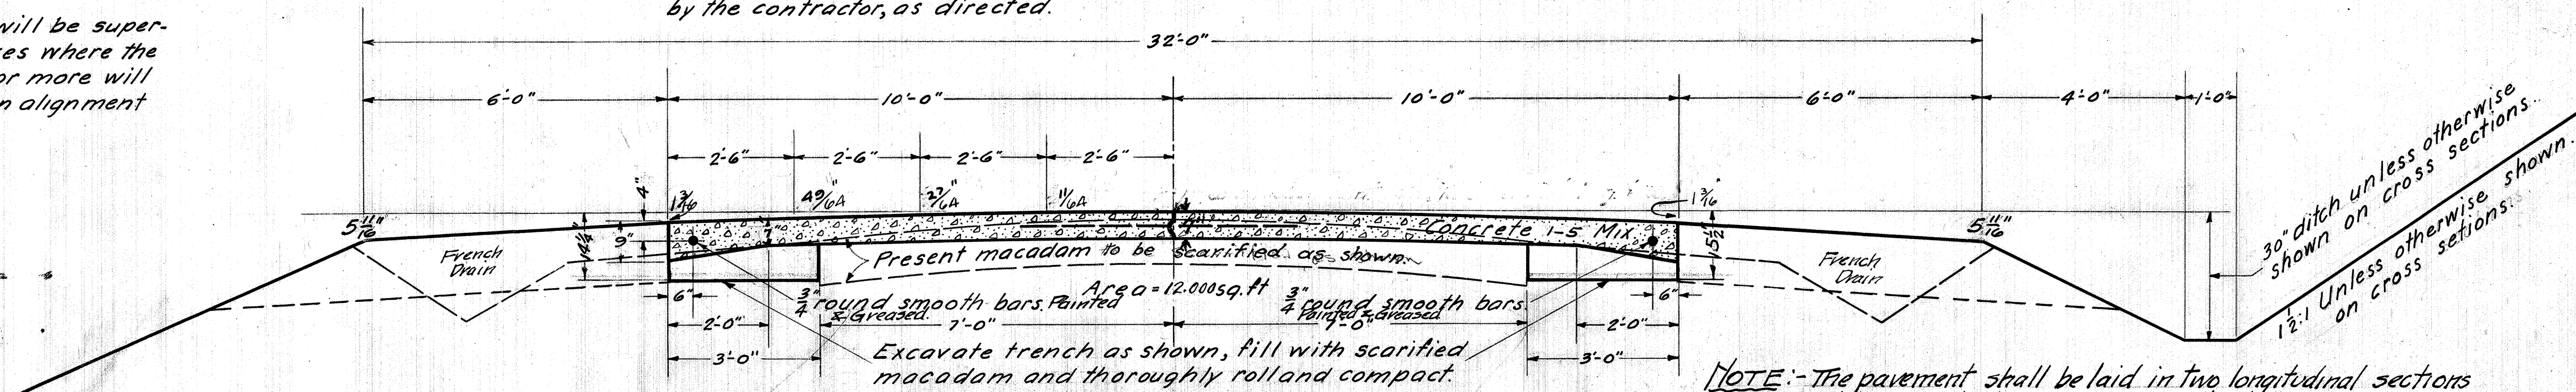 will be super-
es where the
or more will
n alignment
by the contractor, as directed.
32'-0"
6'-0"
10'-0"
10'-0"
6'-0"
4'-0"
1'-0"
2'-6"
2'-6"
2'-6"
2'-6"
4"
1 3/16
49/64
27/64"
11/64
1 3/16"
5 11/16"
5 11/16"
14 1/4"
9"
7"
15 1/2"
Concrete 1-5 Mix
French
Drain
French
Drain
Present macadam to be scarified as shown.
Area = 12.000 sq. ft
6"
6"
3/4" round smooth bars. Painted
& Greased.
3/4" round smooth bars.
Painted & Greased
2'-0"
7'-0"
7'-0"
2'-0"
3'-0"
3'-0"
Excavate trench as shown, fill with scarified
macadam and thoroughly roll and compact.
30" ditch unless otherwise
shown on cross sections.
1 1/2:1 Unless otherwise shown.
on cross setions.
NOTE:- The pavement shall be laid in two longitudinal sections